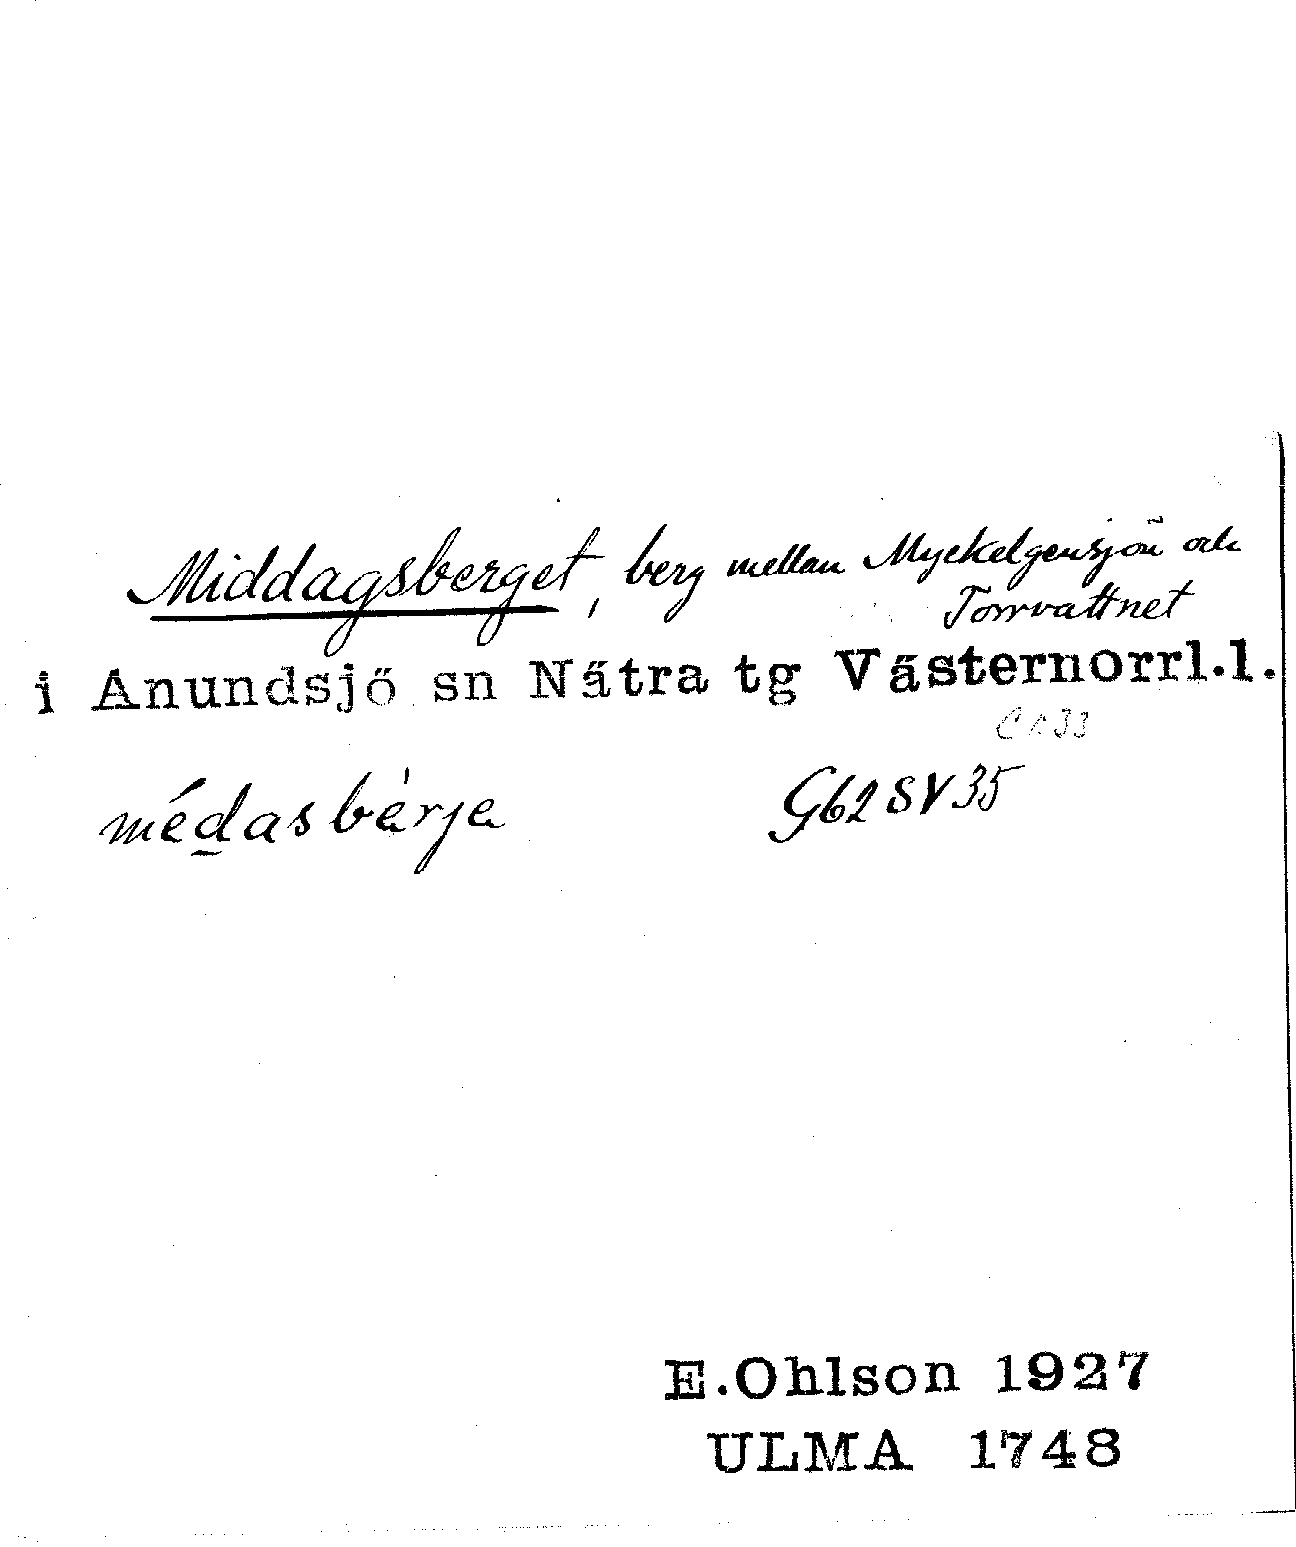 Middagsberget, berg mellan Myckelgensjön och
Torrvattnet
i Anundsjö sn Nätra tg Västernorrl.l.
médasbärja G62SV35
E.Ohlson 1927
ULMA 1748